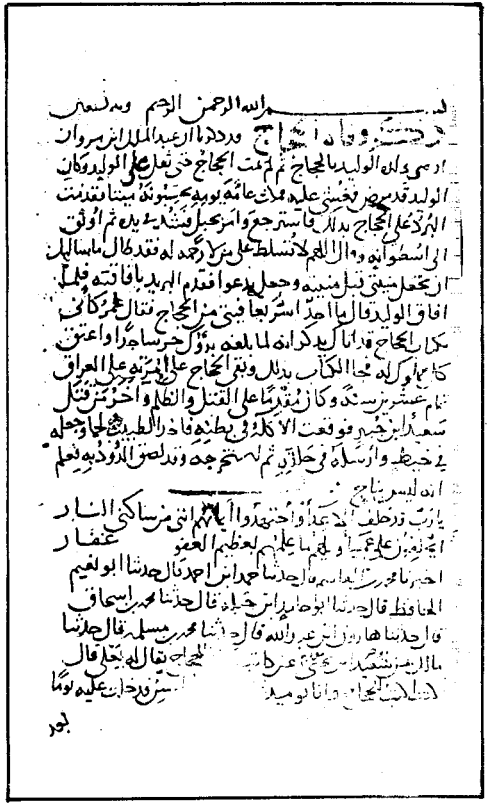 بسم الله الرحمن الرحيم وبه نستعين
ذكر وفاة الحجاج قد ذكرنا ان عبد الملك ابن مروان
اوصى ولده الوليد بالحجاج ثم لم يمت الحجاج حتى ثقل على الوليد وكان
الوليد قد مرض فغشي عليه فمكث عامة يومه يحسبونه ميتا فقدمت
البرد على الحجاج بذلك فاسترجع وامر بحبل فشد في يده ثم اوثق
الى اسطوانة وقال اللهم لا تسلط علي من لا رحمة له فقد طال ما سالتك
ان تجعل منيتي قبل منيته وجعل يدعوا فقدم البريد بافاقته فلما
افاق الوليد قال ما احد اسر بعافيتي من الحجاج فقال عمر كاني
بكتاب الحجاج قد اتاك يذكر انه لما بلغه برؤك خر ساجدا واعتق
كل مملوك له فجا الكتاب بذلك وبقي الحجاج على امرته على العراق
تمام عشرين سنة وكان مقدما على القتل والظلم وآخر من قتل
سعيد ابن جبير فوقعت الاكلة في بطنه فاخذ الطبيب لحما وجعله
في خيط وارسله في حلقه ثم استخرجه وقد لصق الدود به فعلم
انه ليس بناج
يا رب قد حلف الاعداء واجتهدوا ايمانهم انني من ساكني النار
ايحلفون على عمياء ويحهم ما علمهم بعظيم العفو غفار
اخبرنا محمد ابن القاسم قال حدثنا حمد ابن احمد قال حدثنا ابو نعيم
الحافظ قال حدثنا ابو حامد ابن جبلة قال حدثنا محمد بن اسحاق
قال حدثنا هارون ابن عبد الله قال حدثنا محمد بن مسلمة قال حدثنا
مالك بن سعيد عن كاتب الحجاج يقال له يعلى قال
كنت اكتب للحجاج وانا يوميذ السن فدخلت عليه يوما
بعد